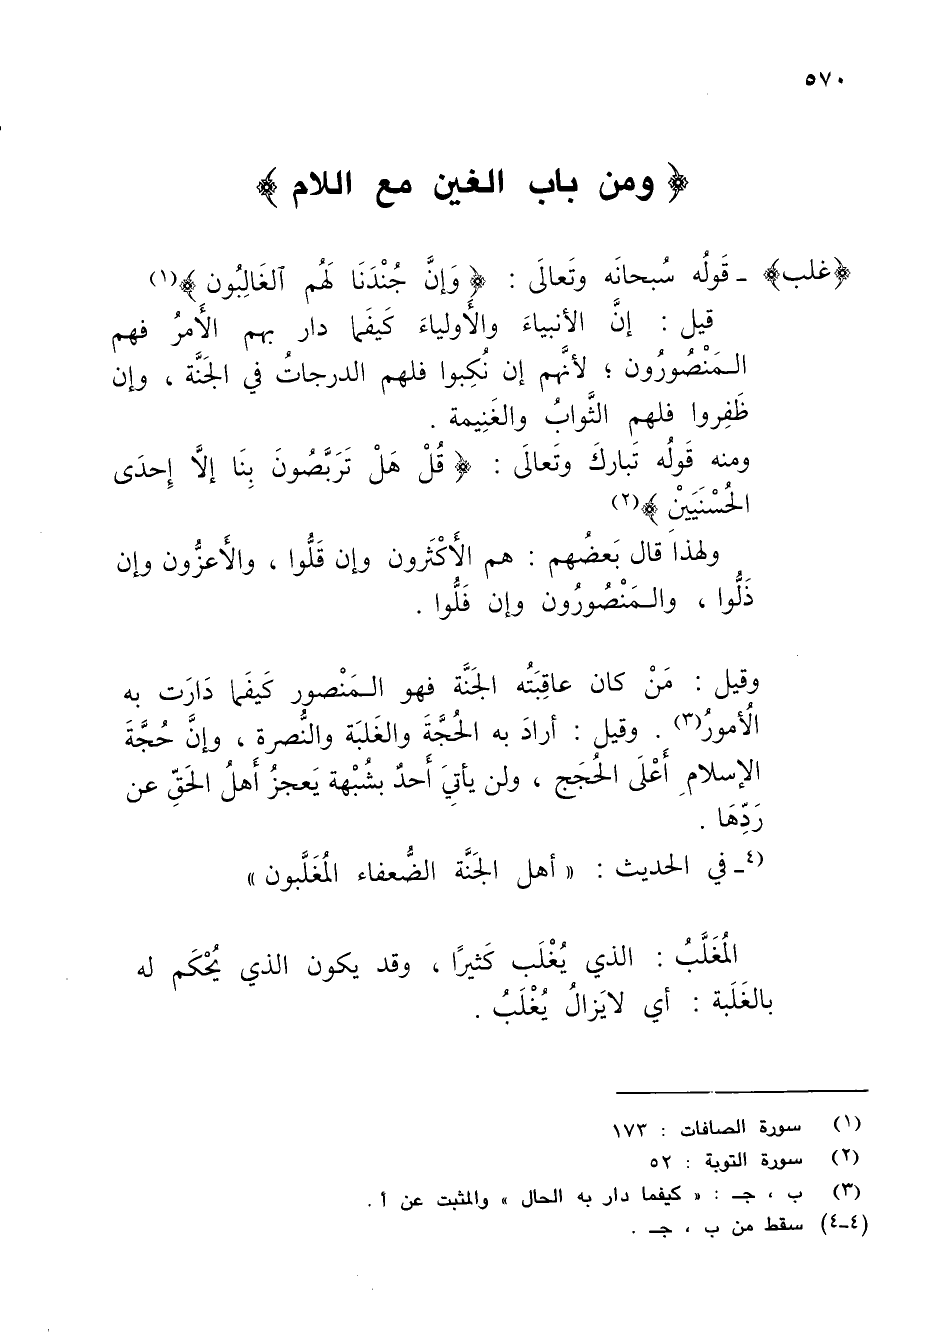 ٥٧٠
﴿ ومن باب الغين مع اللام ﴾
﴿غلب﴾ ـ قَولُه سُبحانَه وتَعالَى : ﴿ وَإِنَّ جُنْدَنَا لَهُم ٱلغَالِبُون ﴾(١)
قيل : إنَّ الأنبياءَ والأَولياءَ كَيفَما دار بهم الأَمرُ فهم
المَنْصُورُون ؛ لأنَّهم إن نُكِبوا فلهم الدرجاتُ في الجَنَّة ، وإن
ظَفِروا فلهم الثَّوابُ والغَنِيمة .
ومنه قَولُه تَبارك وتَعالَى : ﴿ قُلْ هَلْ تَرَبَّصُونَ بِنَا إلاَّ إِحدَى
الحُسْنَيَيْنِ ﴾(٢)
ولهذا قال بَعضُهم : هم الأَكْثَرون وإن قَلُّوا ، والأَعزُّون وإن
ذَلُّوا ، والمَنْصُورُون وإن فَلُّوا .
وقيل : مَنْ كان عاقِبَتُه الجَنَّة فهو المَنْصور كَيفَما دَارَت به
الُأمورُ(٣) . وقيل : أرادَ به الحُجَّةَ والغَلبَة والنُّصرة ، وإنَّ حُجَّةَ
الإسلامِ أَعْلَى الحُجَج ، ولن يأتيَ أَحدٌ بشُبْهة يَعجزُ أَهلُ الحَقِّ عن
رَدِّهَا .
(٤ـ في الحديث : « أهل الجَنَّة الضُّعفاء المُغَلَّبون »
المُغَلَّبُ : الذي يُغْلَب كَثيرًا ، وقد يكون الذي يُحْكَم له
بالغَلَبة : أي لايَزالُ يُغْلَبُ .
(١) سورة الصافات : ١٧٣
(٢) سورة التوبة : ٥٢
(٣) ب ، جـ : « كيفما دار به الحال » والمثبت عن أ .
(٤ـ٤) سقط من ب ، جـ .